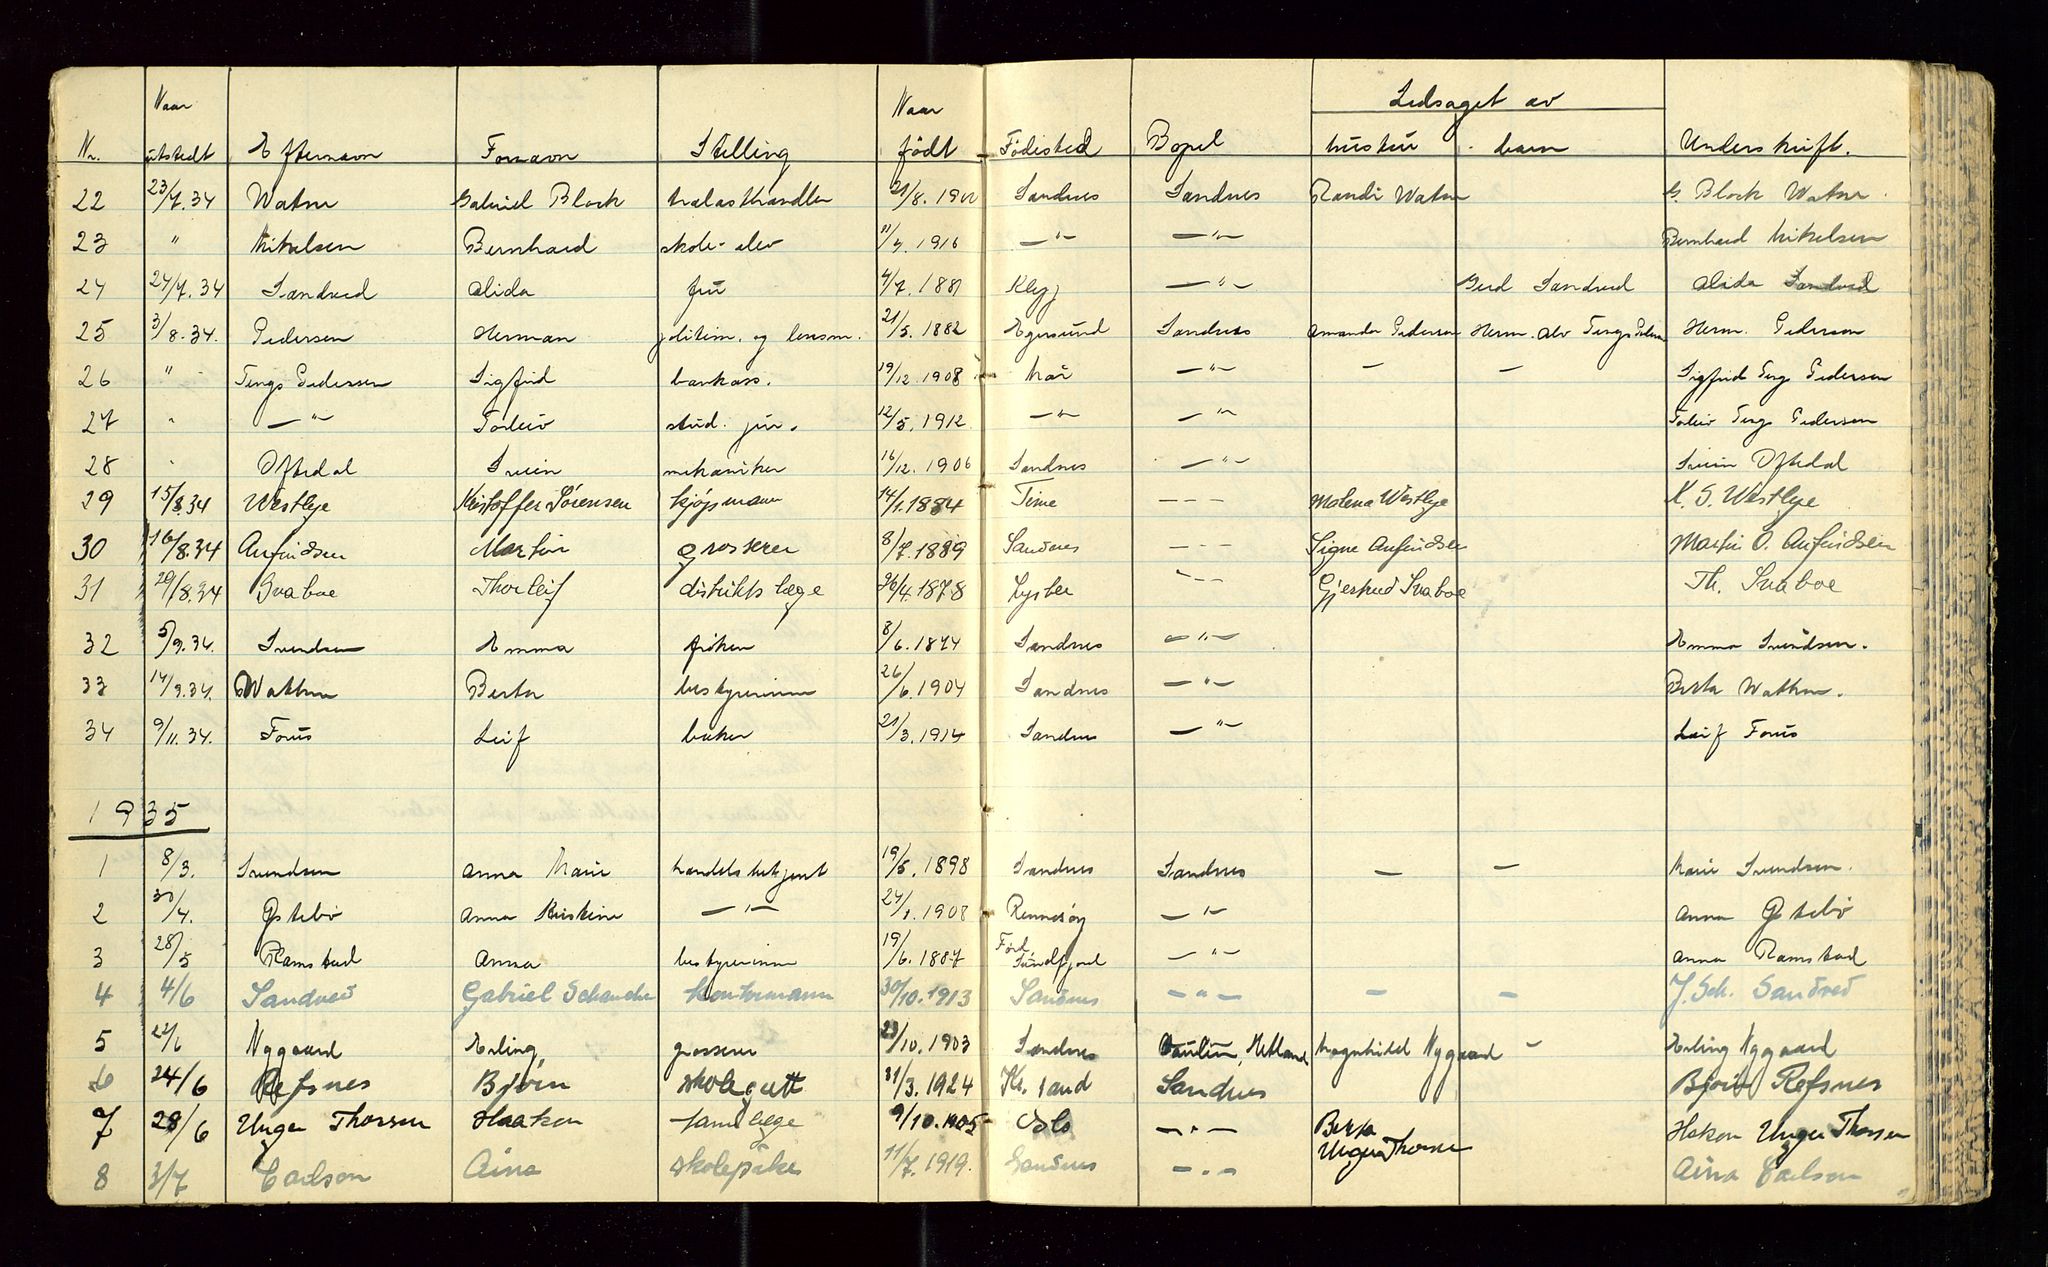 Naar Naar Ledsaget av
Nr. utstedt Efternavn Fornavn Stilling født Fødested Bopel hustru barn Underskrift.
22 23/7.34 Watne Gabriel Block trælasthandler 21/8. Sandnes Sandnes Randi Watne G. Block Watne
23 " Mikelsen Bernhard skole-elev 1916 —"— —"— Bernhard Mikelsen
24 24/7.34 Sandved Alida fru 4/7. 1881 Klepp —"— Gerd Sandved Alida Sandved
25 3/8.34. Pedersen Herman politim. og lensm. 21/5. 1882 Egersund Sandnes Amanda Pedersen Herm. Alv Tengs Pedersen Herm. Pedersen
26 " Tengs Pedersen Sigfrid bankass. 19/12. 1908 Hå —"— — — Sigfrid Tengs Pedersen
27 " —"— Torleiv stud. jur. 12/5. 1912 —"— —"— Torleiv Tengs Pedersen
28 " Oftedal Svein mekaniker 16/12. 1906 Sandnes —"— Svein Oftedal
29 15/8.34 Westlye Kristoffer Sørensen kjøpmann 14/1.1884 Time — — — Malena Westlye K. S. Westlye
30 16/8.34 Anfindsen Martin grosserer 8/7.1889 Sandnes — — — Signe Anfindsen Martin O. Anfindsen
31 29/8.34 Svaboe Thorleif distriktslæge 26/4.1878 Lyster — — — Gjertrud Svaboe Th. Svaboe
32 5/9.34. Svendsen Emma frøken 8/6.1874 Sandnes —"— Emma Svendsen.
33 14/9.34. Wathne Berta bestyrerinne 26/6.1904 Sandnes —"— Berta Wathne.
34 9/11.34. Forus Leif baker 21/3.1914 Sandnes —"— Leif Forus
1935
1 8/3. Svendsen Anna Marie handelsbetjent 19/5. 1898 Sandnes Sandnes — — Marie Svendsen.
2 30/4. Østebø Anna Kirstine —"— 24/1.1908 Rennesøy —"— Anna Østebø
3 28/5 Ramstad Anna bestyrerinne 19/6.1887 Førd Sundfjord —"— Anna Ramstad
4 4/6 Sandved Gabriel Schanche kontormann 30/10.1913 Sandnes —"— — — J. Sch. Sandved
5 22/6 Nygaard Erling grosserer 23/10.1903 Sandnes Hetland Magnhild Nygaard — Erling Nygaard
6 24/6 Refsnes Bjørn skolegutt 31/3.1924 Kr. sand Sandnes Bjørn Refsnes
7 28/6 Unger Thorsen Haakon tannlæge 9/10.1905 Oslo —"— Berta Unger Thorsen Hakon Unger Thorsen
8 3/7 Carlson Aina skolepike 11/7.1919. Sandnes —"— Aina Carlson